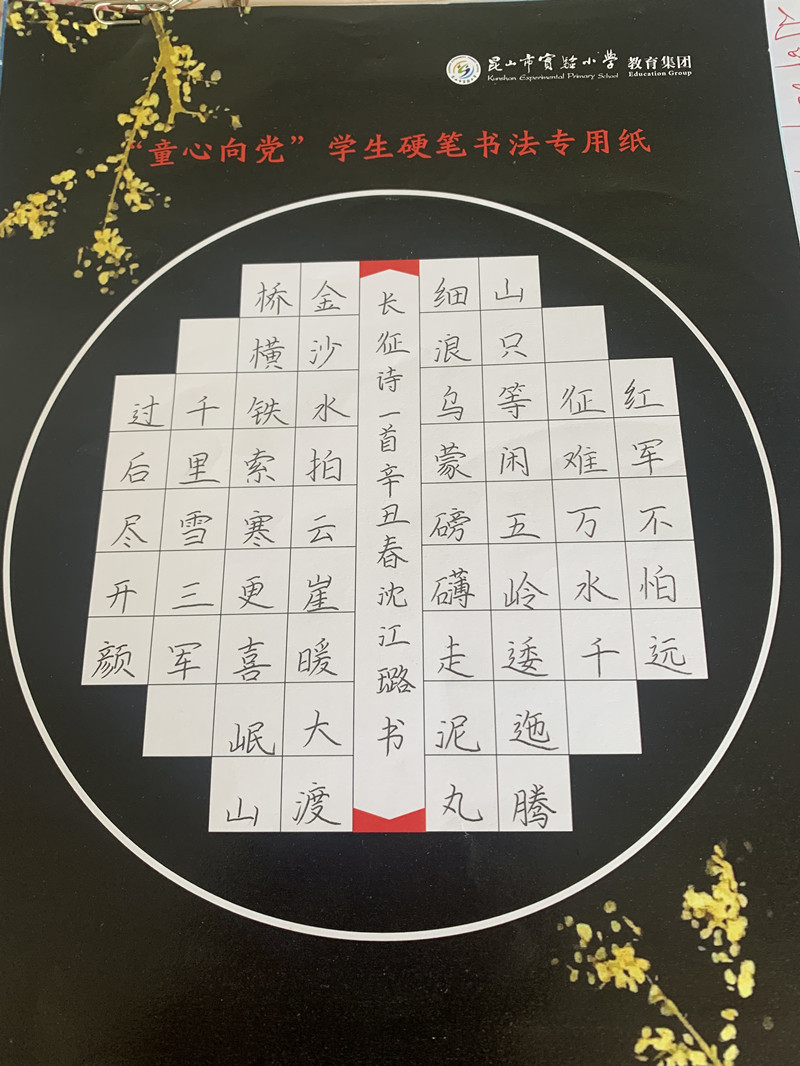 昆山市实验小学 教育集团
Kunshan Experimental Primary School Education Group
“童心向党”学生硬笔书法专用纸
红军不怕远
征难万水千
山只等闲五岭逶迤腾
细浪乌蒙磅礴走泥丸
长征诗一首辛丑春沈江璐书
金沙水拍云崖暖大渡
桥横铁索寒更喜岷山
千里雪三军
过后尽开颜